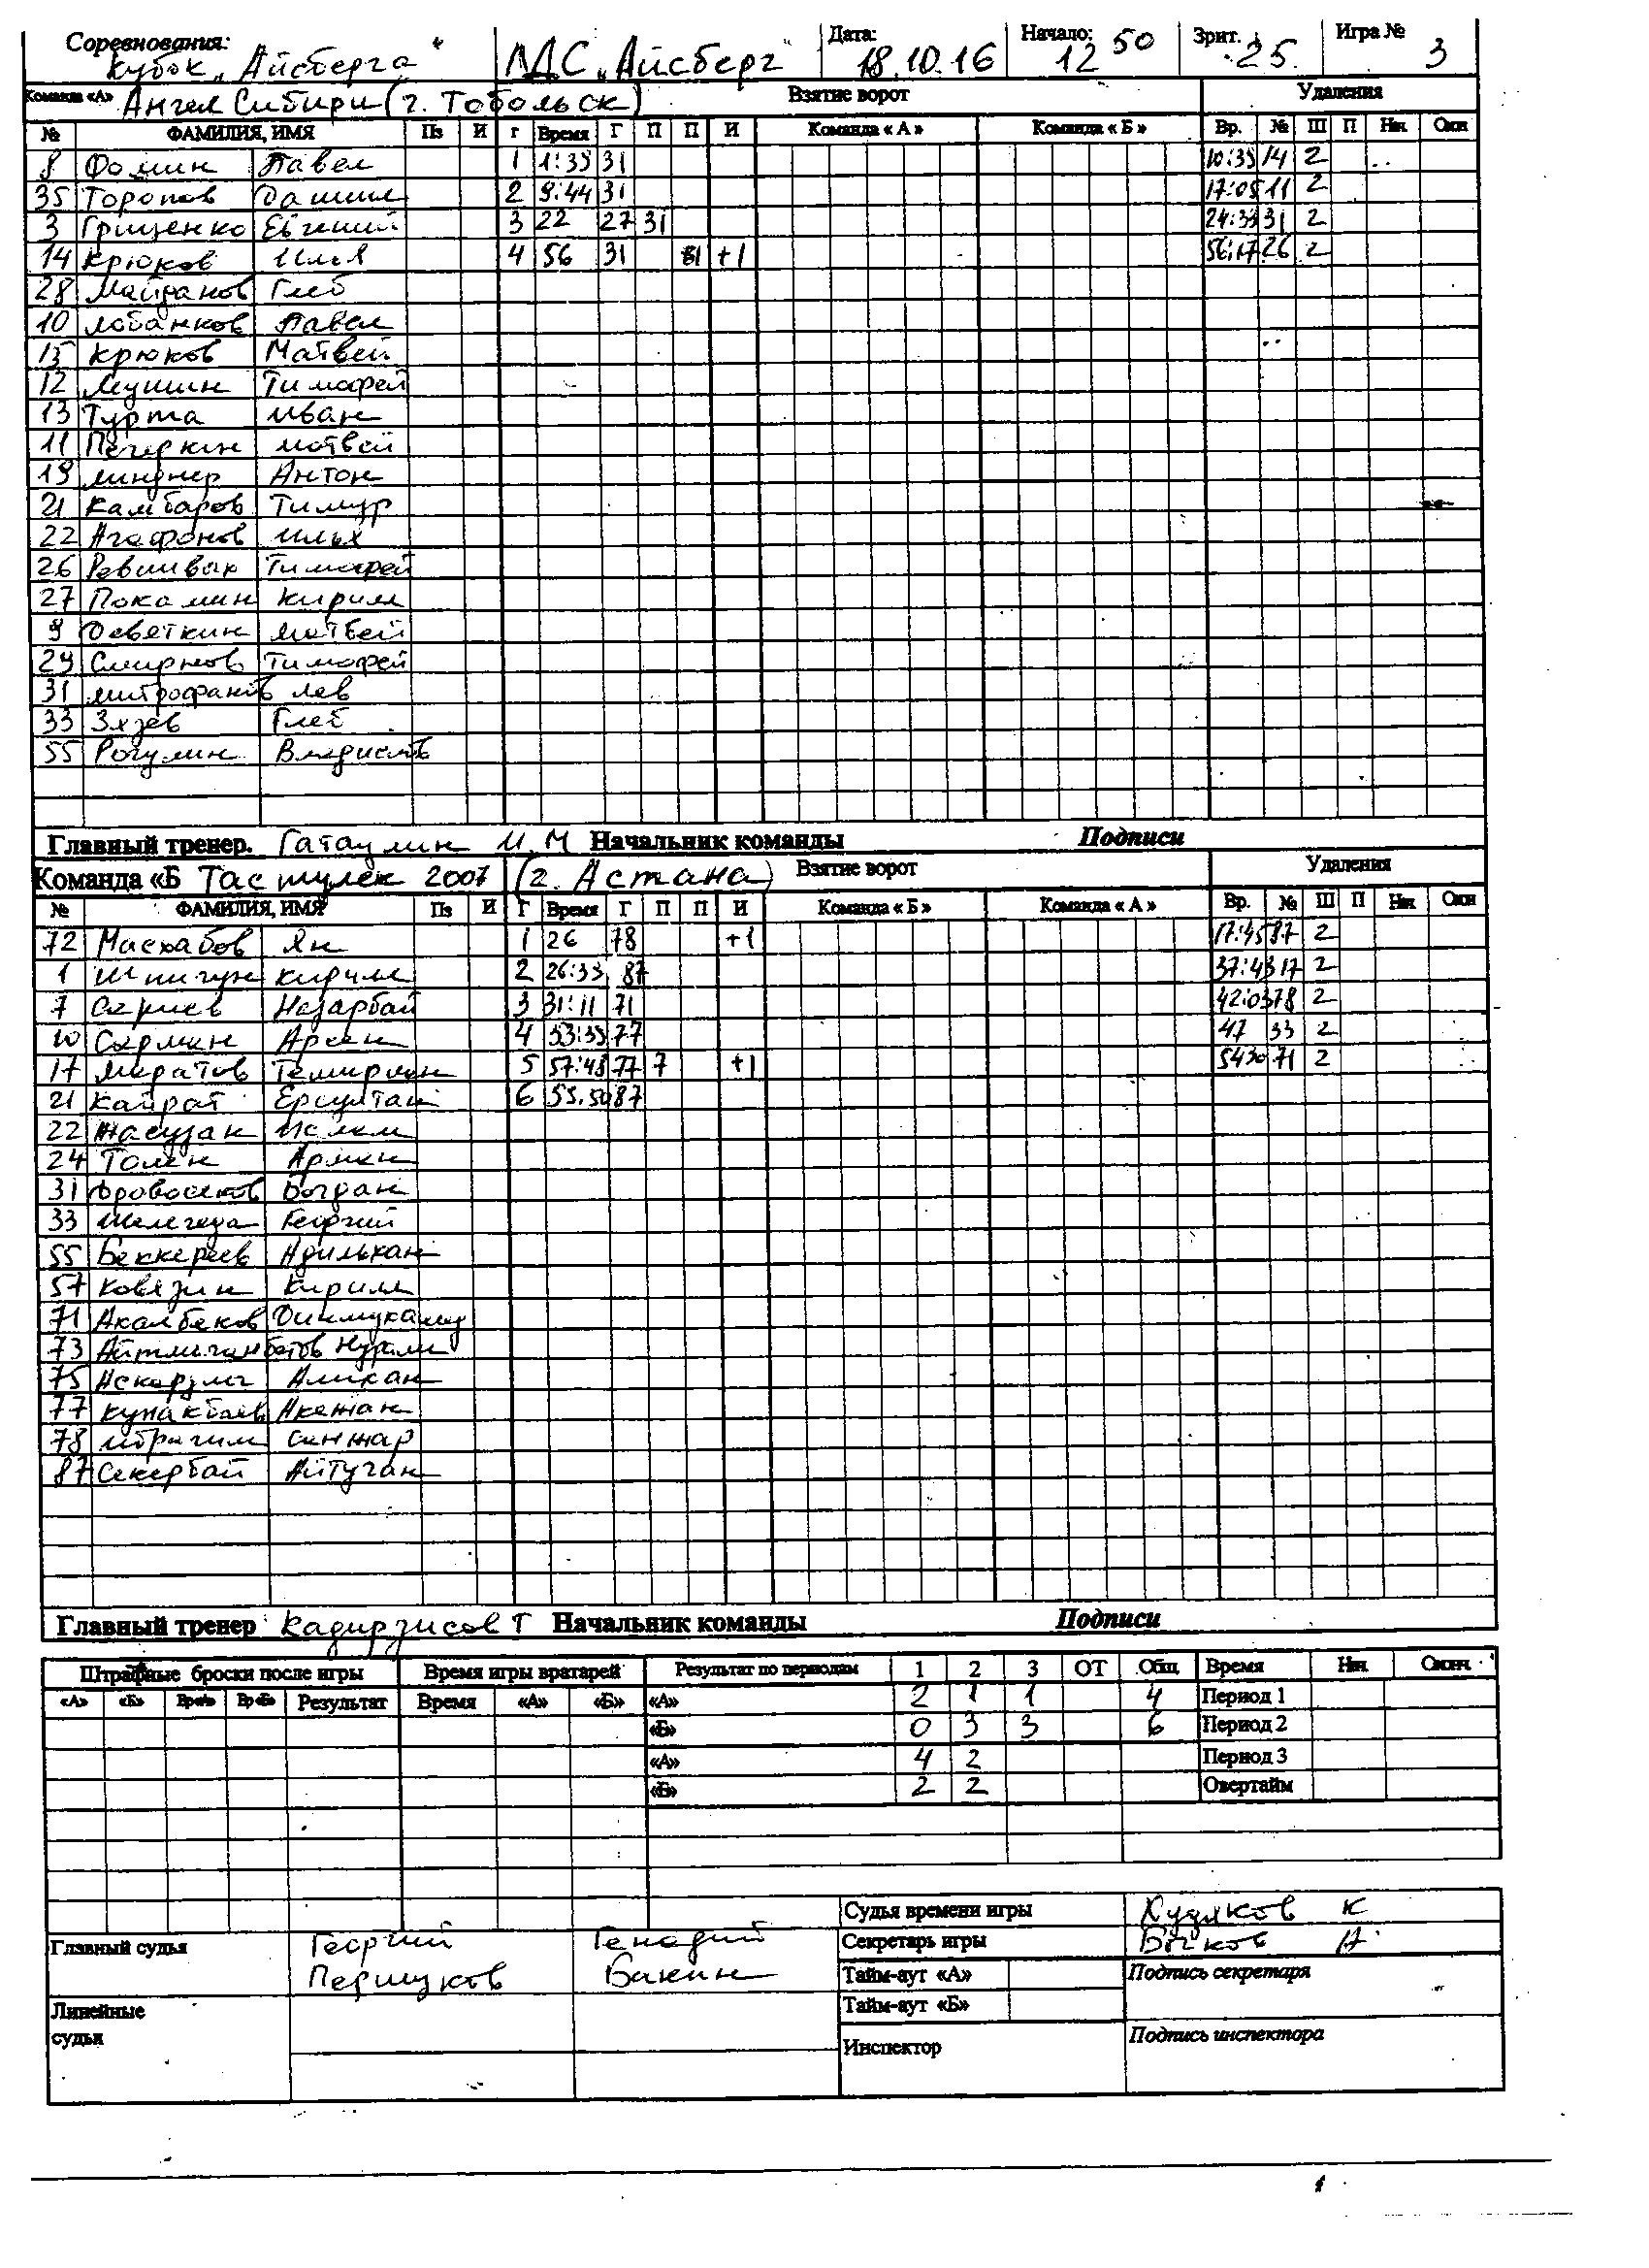 Соревнования: Дата: Начало: Зрит. Игра №
Кубок „Айсберга" ЛДС „Айсберг" 18.10.16 12 50 25. 3
Команда «А» Ангел Сибири (г. Тобольск) Взятие ворот Удаления
№ ФАМИЛИЯ, ИМЯ Пз И г Время Г П П И Команда « А » Команда « Б » Вр. № Ш П Нач. Окн
8 Фомин Павел 1 1:39 31 10:39 14 2
35 Торопов Даниил 2 9:44 31 17:05 11 2
3 Гриценко Евгений 3 22 27 31 24:39 31 2
14 Крюков Илья 4 56 31 81 +1 56:17 26 2
28 Майданов Глеб
10 Лобанков Павел
15 Крюков Матвей
12 Леушин Тимофей
13 Турта Иван
11 Печеркин Матвей
19 Линднер Антон
21 Камбаров Тимур
22 Агафонов Илья
26 Ревнивых Тимофей
27 Покамин Кирилл
9 Осветкин Матвей
29 Смирнов Тимофей
31 Митрофанов Лев
33 Зязев Глеб
55 Рогулин Владислав
Главный тренер. Гатаулин И.М Начальник команды Подписи
Команда «Б Тастулек 2007 (г. Астана) Взятие ворот Удаления
№ ФАМИЛИЯ, ИМЯ Пз И Г Время Г П П И Команда « Б » Команда « А » Вр. № Ш П Нач. Окн
72 Масхабов Ян 1 26 78 +1 17:45 87 2
1 Шпигун Кирилл 2 26:33 87 37:43 17 2
7 Сериев Назарбай 3 31:11 71 42:03 78 2
10 Сярмин Арсен 4 53:39 77 47 33 2
17 Маратов Темирлан 5 57:48 77 7 +1 5430 71 2
21 Кайрат Ерсултан 6 59.50 87
22 Жасузак Ислам
24 Толен Армен
31 Дровосеков Богдан
33 Шелегеда Георгий
55 Беккереев Адильхан
57 Ковязин Кирилл
71 Акалбеков Динмухамед
73 Айтмаганбетов Нурали
75 Аскарулы Алихан
77 Кунакбаев Акежан
78 Ибрагим Санжар
87 Секербай Айтуган
Главный тренер Кадиргисов Т Начальник команды Подписи
Штрафные броски после игры Время игры вратарей Результат по периодам 1 2 3 ОТ Общ. Время Нач. Оконч.
«А» «Б» Вр«А» Вр«Б» Результат Время «А» «Б» «А» 2 1 1 4 Период 1
«Б» 0 3 3 6 Период 2
«А» 4 2 Период 3
«Б» 2 2 Овертайм
Судья времени игры Худяков К
Главный судья Георгий Генадий Секретарь игры Бычков А
Першуков Бакин Тайм-аут «А» Подпись секретаря
Линейные судьи Тайм-аут «Б»
Инспектор Подпись инспектора